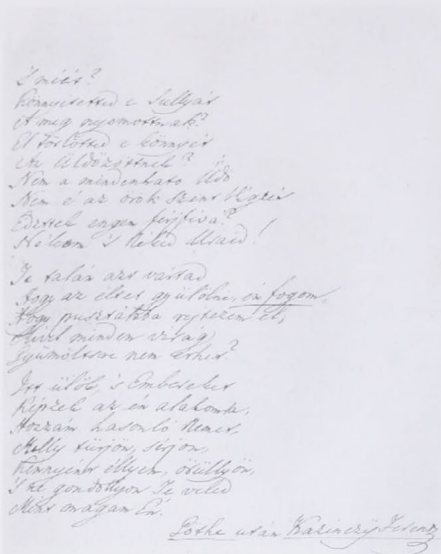 S miért?
Könnyitetted e Sullyát
A meg nyomottnak?
El törlötted e könnyét
Az Üldözöttnek?
Nem a mindenható Idő
Nem é az örök Szent Végzés
Edzettek engem férjfivá?
Nékem 's Néked Uraid!
Te talán azt vártad
Hogy az éltet gyülölni én fogom,
Hogy pusztákba rejtezem el,
Mivel minden virág
Gyümöltsre nem érhet?
Itt ülök, 's Embereket
Képzek az én alakomra,
Hozzám hasonló Nemet,
Melly tűrjön, sírjon,
Könnyent éllyen, örüllyön,
's ne gondollyon Te veled
Mint magam Én.
Göthe után Kazinczy Ferencz